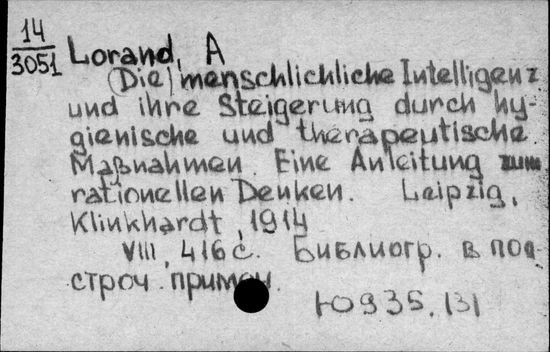 14
3051
Lorand, A
(Die) menschlichliche Intelligenz
und ihre Steigerung durch hy-
gienische und therapeutische
Maßnahmen. Eine Anleitung zum
rationellen Denken. Leipzig,
Klinkhardt, 1914
VIII, 416 с. Библиогр. в под
строч. примеч.
Ю935.131